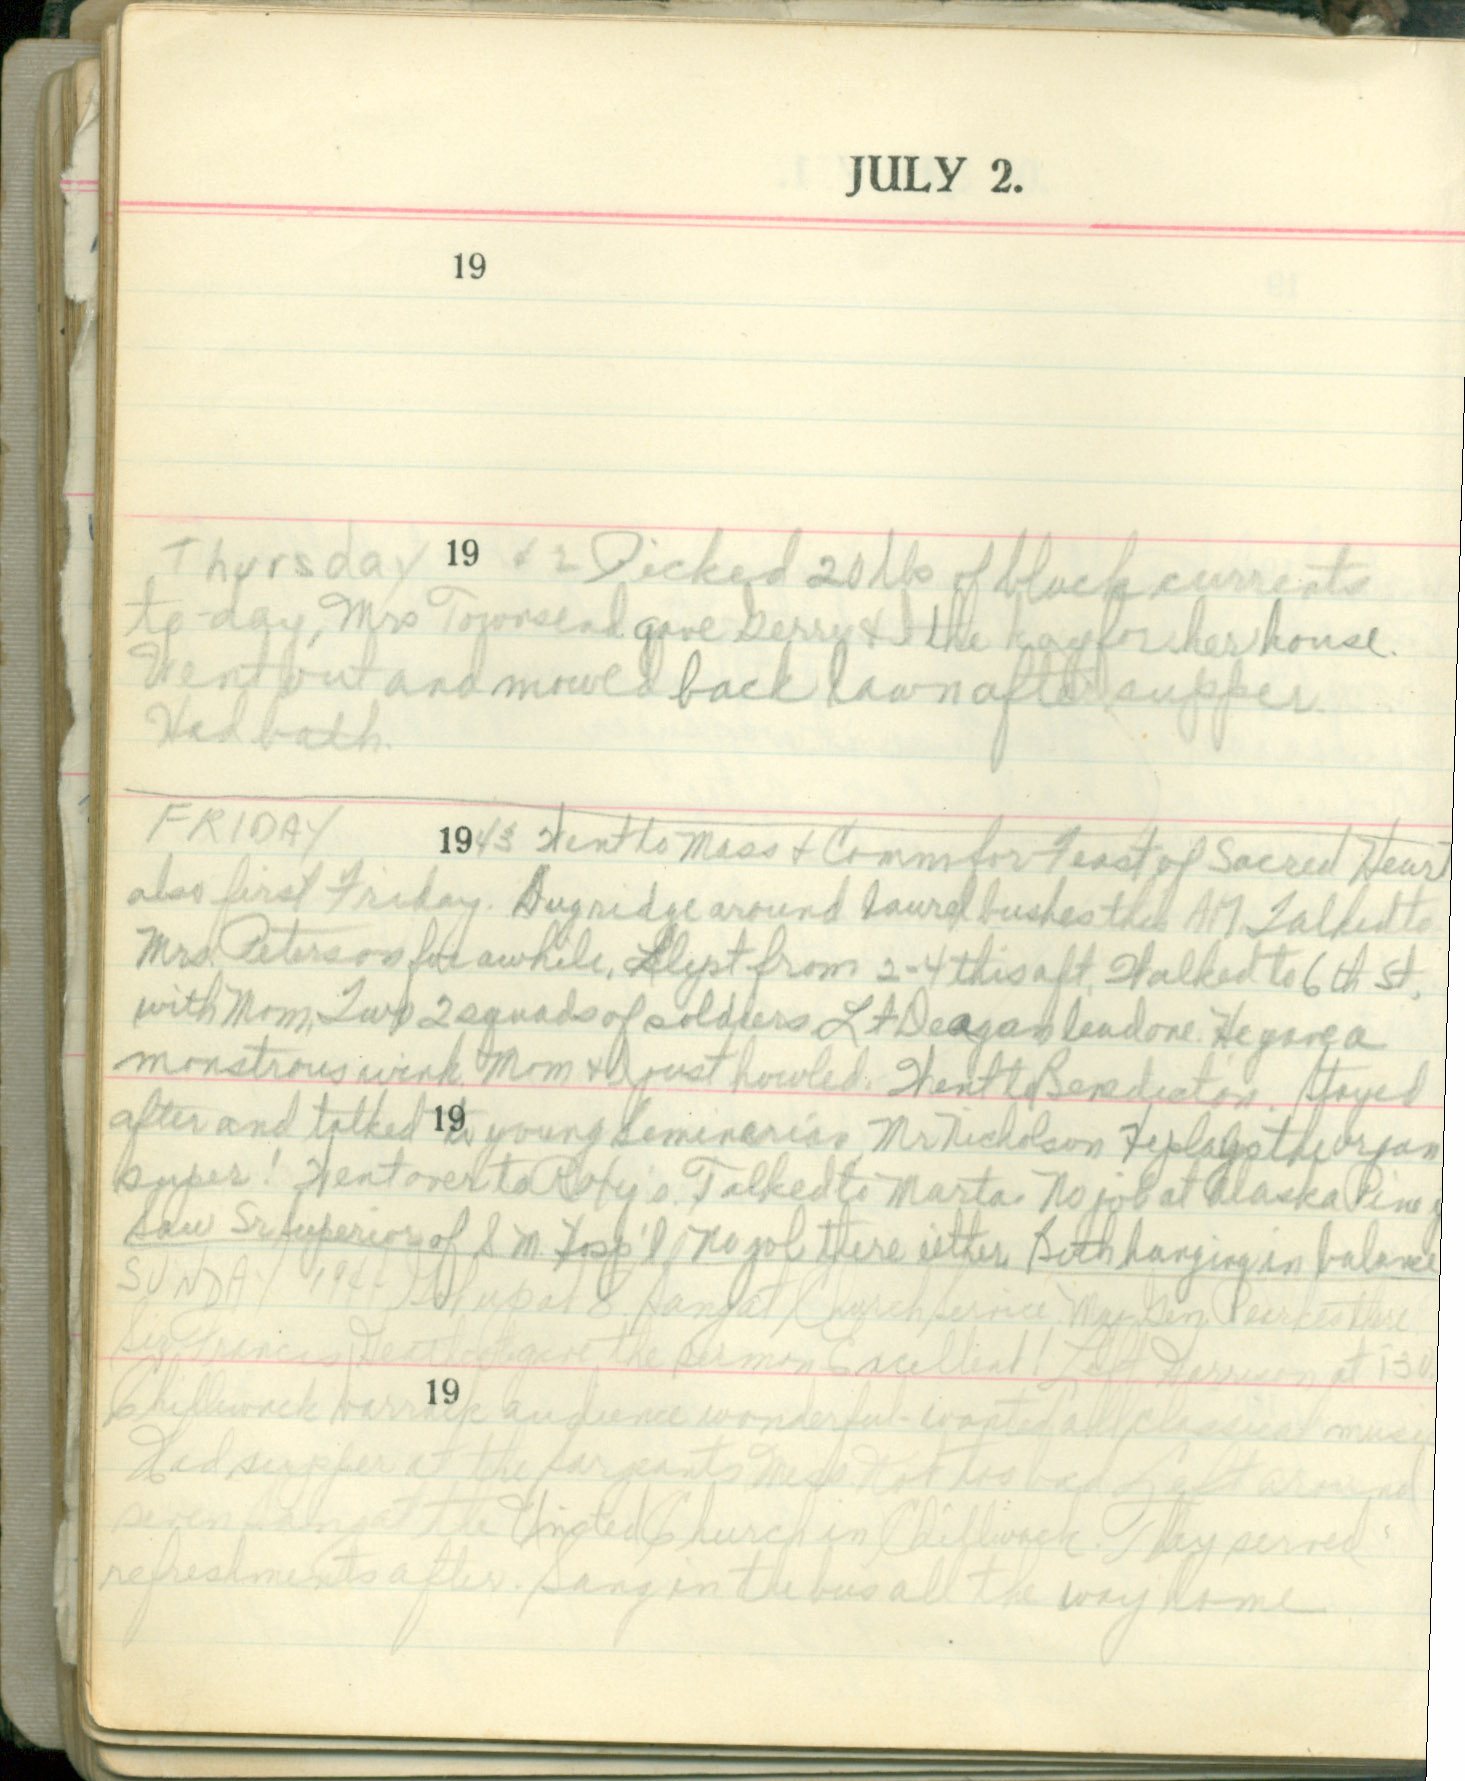 JULY 2.
19
Thursday 19 42 Picked 20 lbs of black currents
to-day, Mrs Townsend gave Gerry & I the key for her house.
Went out and mowed back lawn after supper.
Had bath.
FRIDAY 1943 Went to Mass & Comm for Feast of Sacred Heart
also first Friday. Dug ridge around laurel bushes this AM Talked to
Mrs. Peterson for awhile, Slept from 2-4 this aft. Walked to 6th St.
with Mom, 2 squads of soldiers Lt Deagan lead one. He gave a
monstrous wink Mom & I just howled. Went to Benediction. Stayed
19
after and talked to young Seminarian Mr Nicholson He plays the organ
super! Went over to Talked to Marta. No job at Alaska Pine
Saw Sr. Superior of S M Hosp'l No job there either Both hanging in balance
SUNDAY 1944 up at 8 Sang at Church Service. Maj Gen Pearkes there
Francis gave the sermon Excellent! Left Harrison at 130
19
Chilliwack barrack audience wonderful - wanted all classical music
Had supper at the sargeants Mess. Not too bad Left around
seven Sang at the United Church in Chilliwack. They served
refreshments after. Sang in the bus all the way home